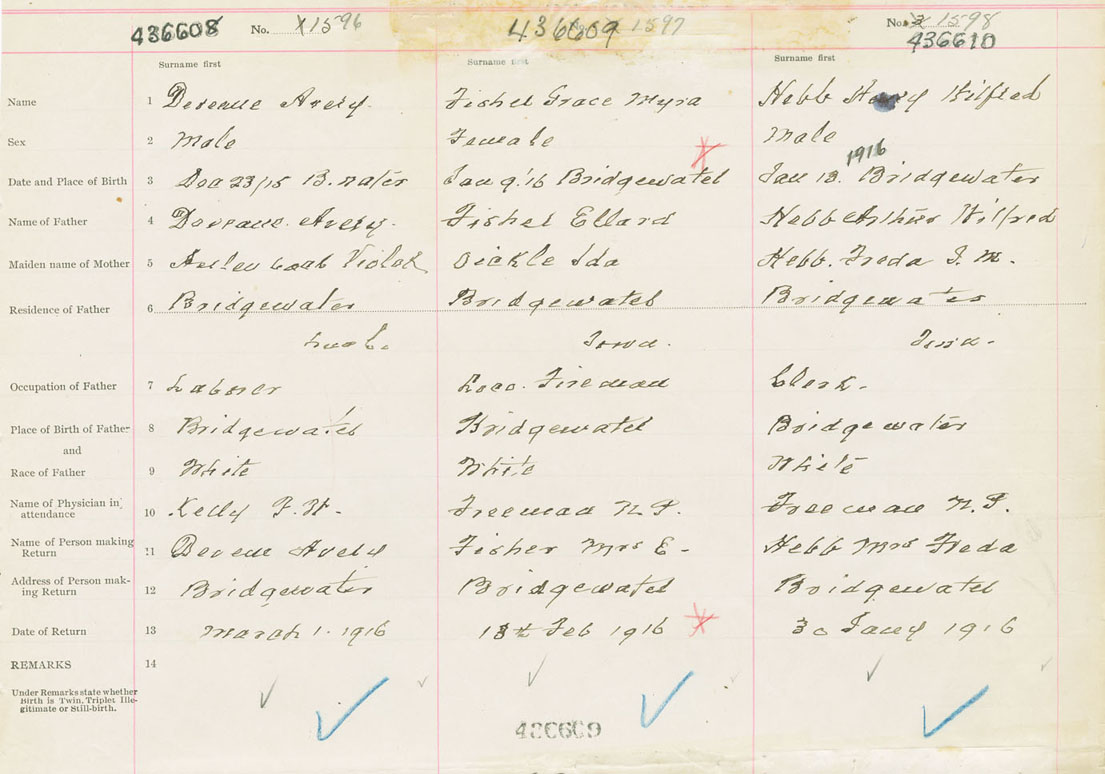 436608 No. x1596 436609 1597 No. 1598
436610
Surname first Surname first Surname first
Name 1 Deveaue Avery. Fisher Grace Myra Hebb Wilfred
Sex 2 Male Female Male
Date and Place of Birth 3 Dec 23/15 B.water Jan 9 '16 Bridgewater Jan 13. 1916 Bridgewater
Name of Father 4 Avery. Fisher Ellard Hebb Arthur Wilfred
Maiden name of Mother 5 Violet Oickle Ida Hebb. Freda J. M.
Residence of Father 6 Bridgewater Bridgewater Bridgewater
Lunb. Town. Town.
Occupation of Father 7 Laborer Loco. Fireman Clerk.
Place of Birth of Father 8 Bridgewater Bridgewater Bridgewater
and
Race of Father 9 White White White
Name of Physician in attendance 10 Kelly F. W. Freeman N. P. Freeman N. P.
Name of Person making Return 11 Avery Fisher Mrs E - Hebb Mrs Freda
Address of Person making Return 12 Bridgewater Bridgewater Bridgewater
Date of Return 13 March 1. 1916 18th Feb 1916 30 Jany 1916
REMARKS 14
Under Remarks state whether
Birth is Twin, Triplet Ille-
gitimate or Still-birth.
436609